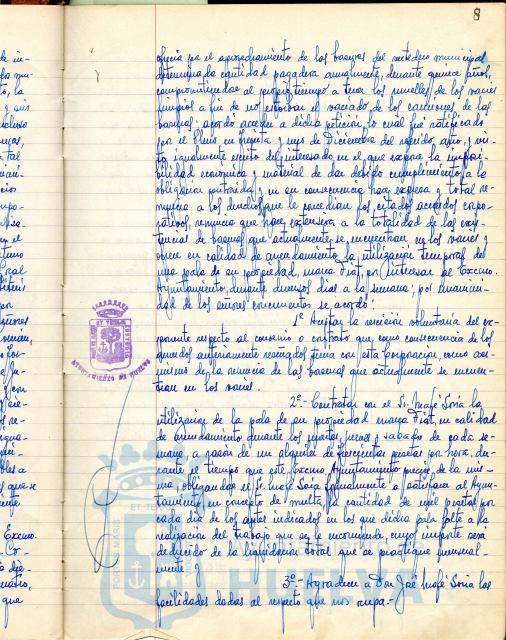 8
ofrecía por el aprovechamiento de las basuras del vertedero municipal
determinada cantidad pagadera anualmente, durante quince años,
comprometiéndose al propio tiempo a tener los muelles de los vacies
limpios a fin de no estorbar el vaciado de los camiones de las
basuras; acordó acceder a dicha petición, lo cual fué ratificado
por el Pleno en treinta y uno de Diciembre del referido año, y vis-
to igualmente escrito del interesado en el que expone la imposi-
bilidad económica y material de dar debido cumplimiento a la
obligación contraída y en su consecuencia hace expresa y total re-
nuncia a los derechos que le concedían los citados acuerdos corpo-
rativos, renuncia que hace extensiva a la totalidad de las exis-
tencias de basuras que actualmente se encuentran en los vacies y
ofrece en calidad de arrendamiento la utilización temporal de
una pala de su propiedad, marca Fiat, por interesar al Excmo.
Ayuntamiento, durante diversos días a la semana; por unanimi-
dad de los señores concurrentes se acordó:
1º Aceptar la rescisión voluntaria del ex-
ponente respecto al convenio o contrato que, como consecuencia de los
acuerdos anteriormente reseñados tenía con esta Corporación, como así
mismo de la renuncia de las basuras que actualmente se encuen-
tran en los vacies.
2º.- Contratar con el Sr. Mafé Soria la
utilización de la pala de su propiedad marca Fiat, en calidad
de arrendamiento durante los martes, jueves y sabados de cada se-
mana, a razón de un alquiler de trescientas pesetas por hora, du-
rante el tiempo que este Excmo. Ayuntamiento precise de la mis-
ma, obligandose el Sr. Mafé Soria igualmente a satisfacer al Ayun-
tamiento en concepto de multa, la cantidad de mil pesetas por
cada día de los antes indicados en los que dicha pala falte a la
realización del trabajo que se le encomiende cuyo importe será
deducido de la liquidación total que se practique mensual-
mente y
3º.- Agradecer a Don José Mafé Soria las
facilidades dadas al respecto que nos ocupa.-
AYUNTAMIENTO DE HUELVA
HUELVA